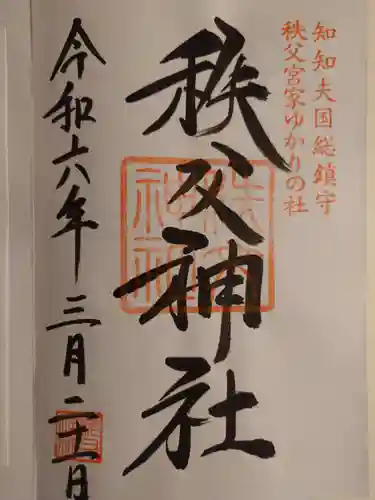 知知夫国総鎮守
秩父宮家ゆかりの社
秩父神社
令和六年 三月二十一日